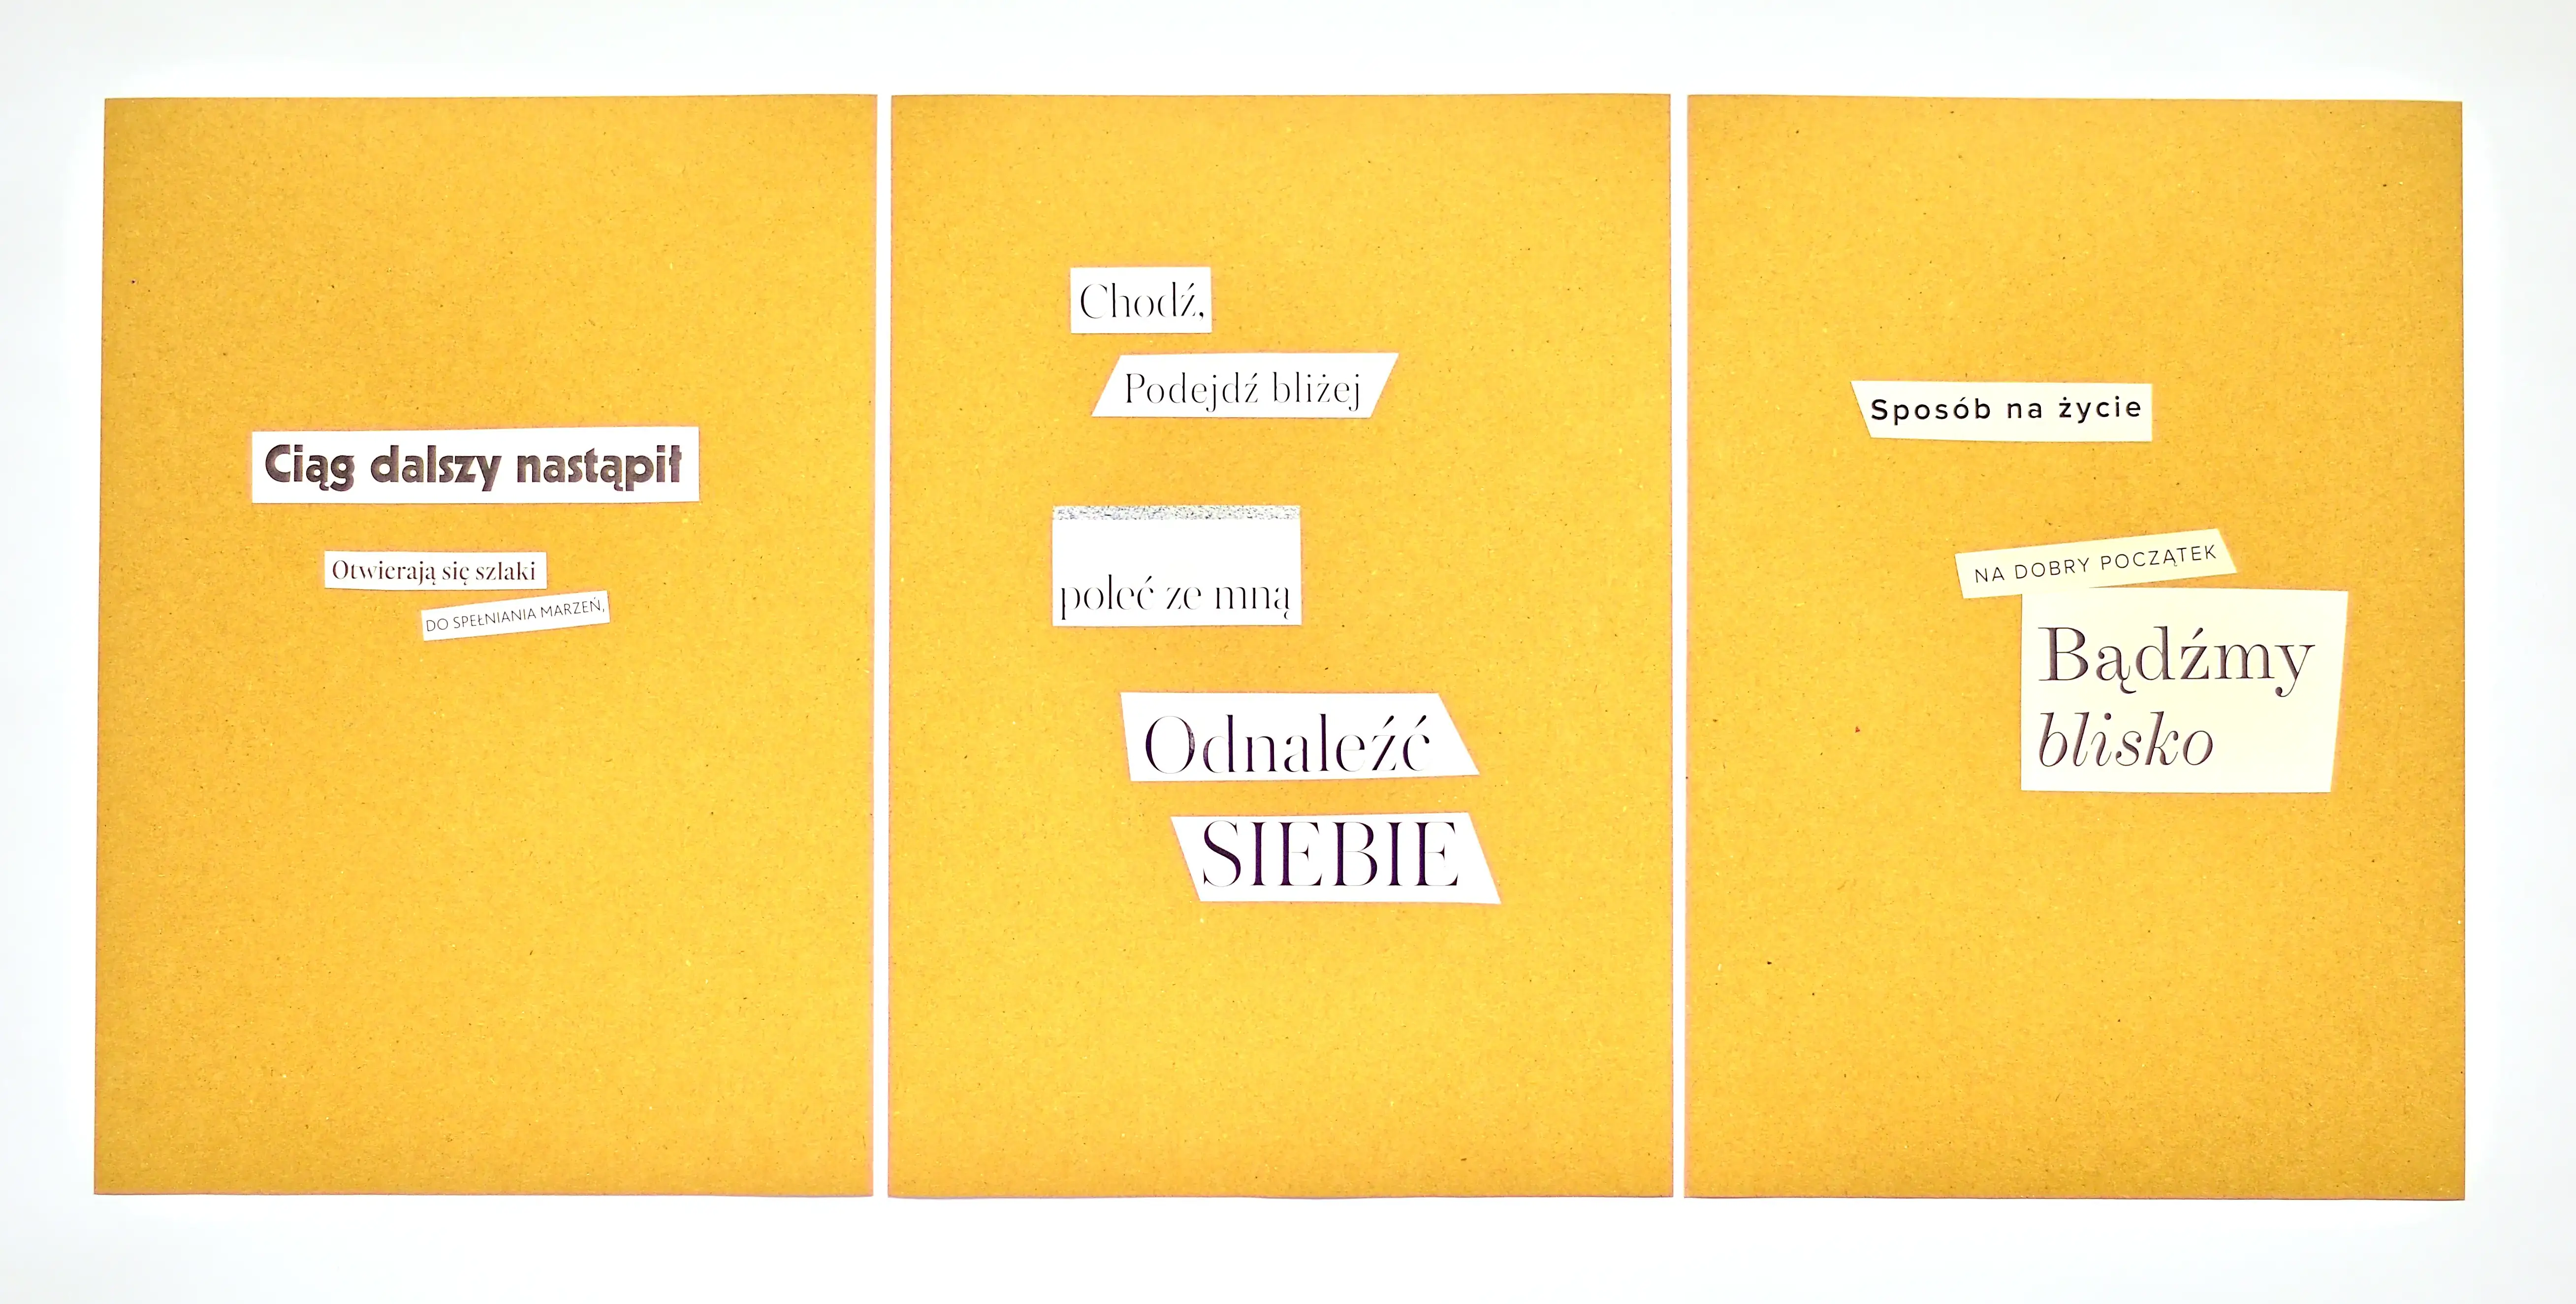 Ciąg dalszy nastąpił
Otwierają się szlaki
DO SPEŁNIANIA MARZEŃ,
Chodź,
Podejdź bliżej
poleć ze mną
Odnaleźć
SIEBIE
Sposób na życie
NA DOBRY POCZĄTEK
Bądźmy
blisko